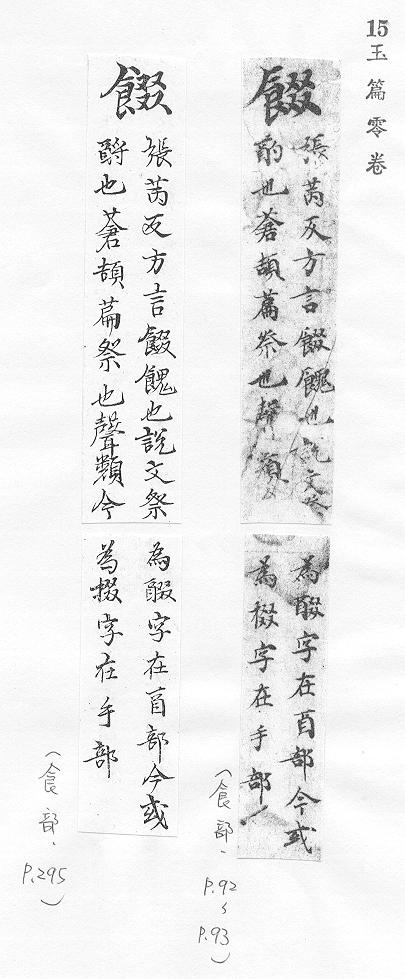 15
玉篇零卷
餟
張芮反方言餟餽也說文祭
酹也蒼頡萹祭也聲類
為醊字在酉部今或
為棳字在手部
(食部、
P.92
~
P.93)
餟
張芮反方言餟餽也說文祭
酹也蒼頡萹祭也聲類今
為醊字在酉部今或
為掇字在手部
(食部、
P.295)